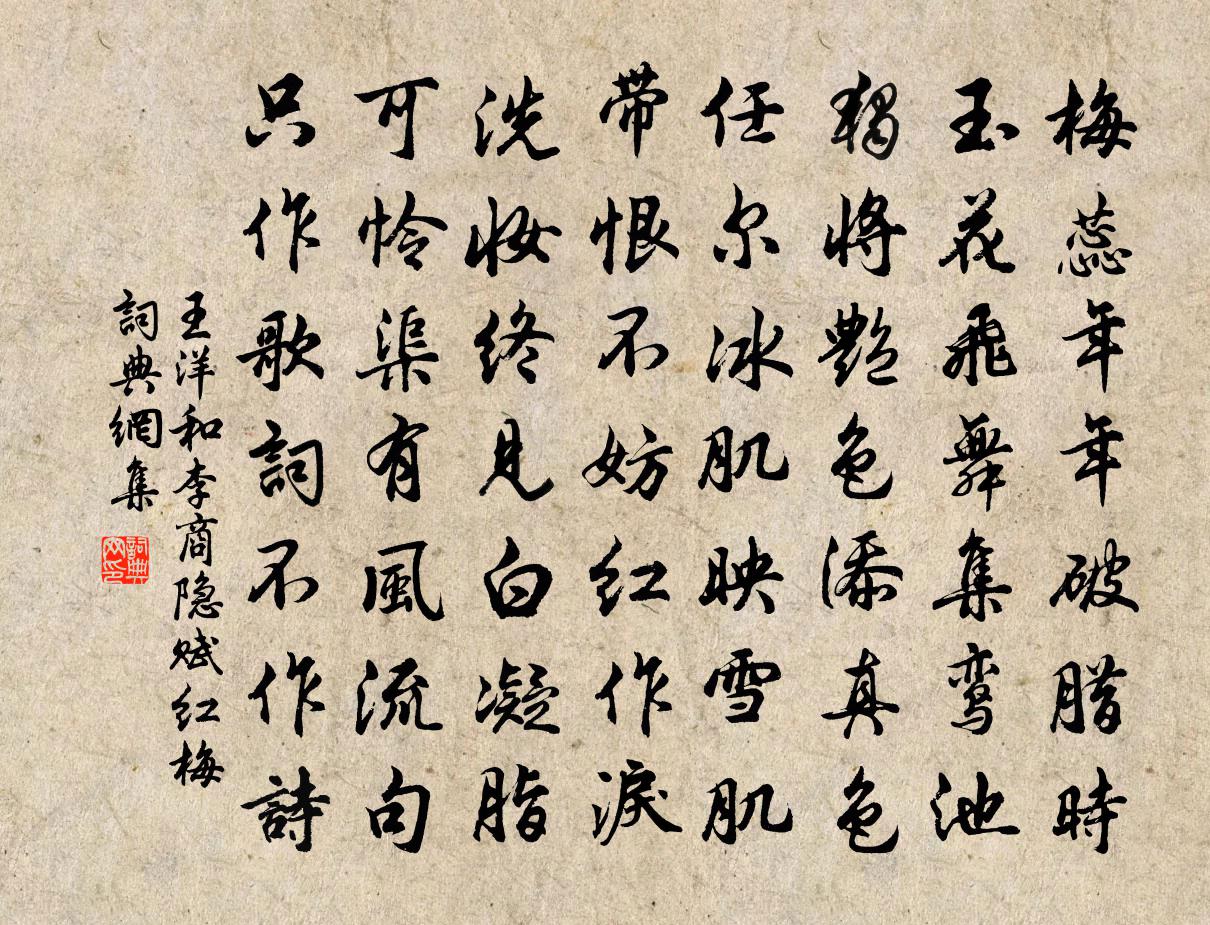 梅蕊年年破腊時
玉花飛舞集鸾池
獨將艷色添真色
任尔冰肌映雪肌
带恨不妨红作淚
洗妆终見白凝脂
可怜渠有風流句
只作歌詞不作詩
王洋和李商隐赋红梅
詞典網集
詞典
网印